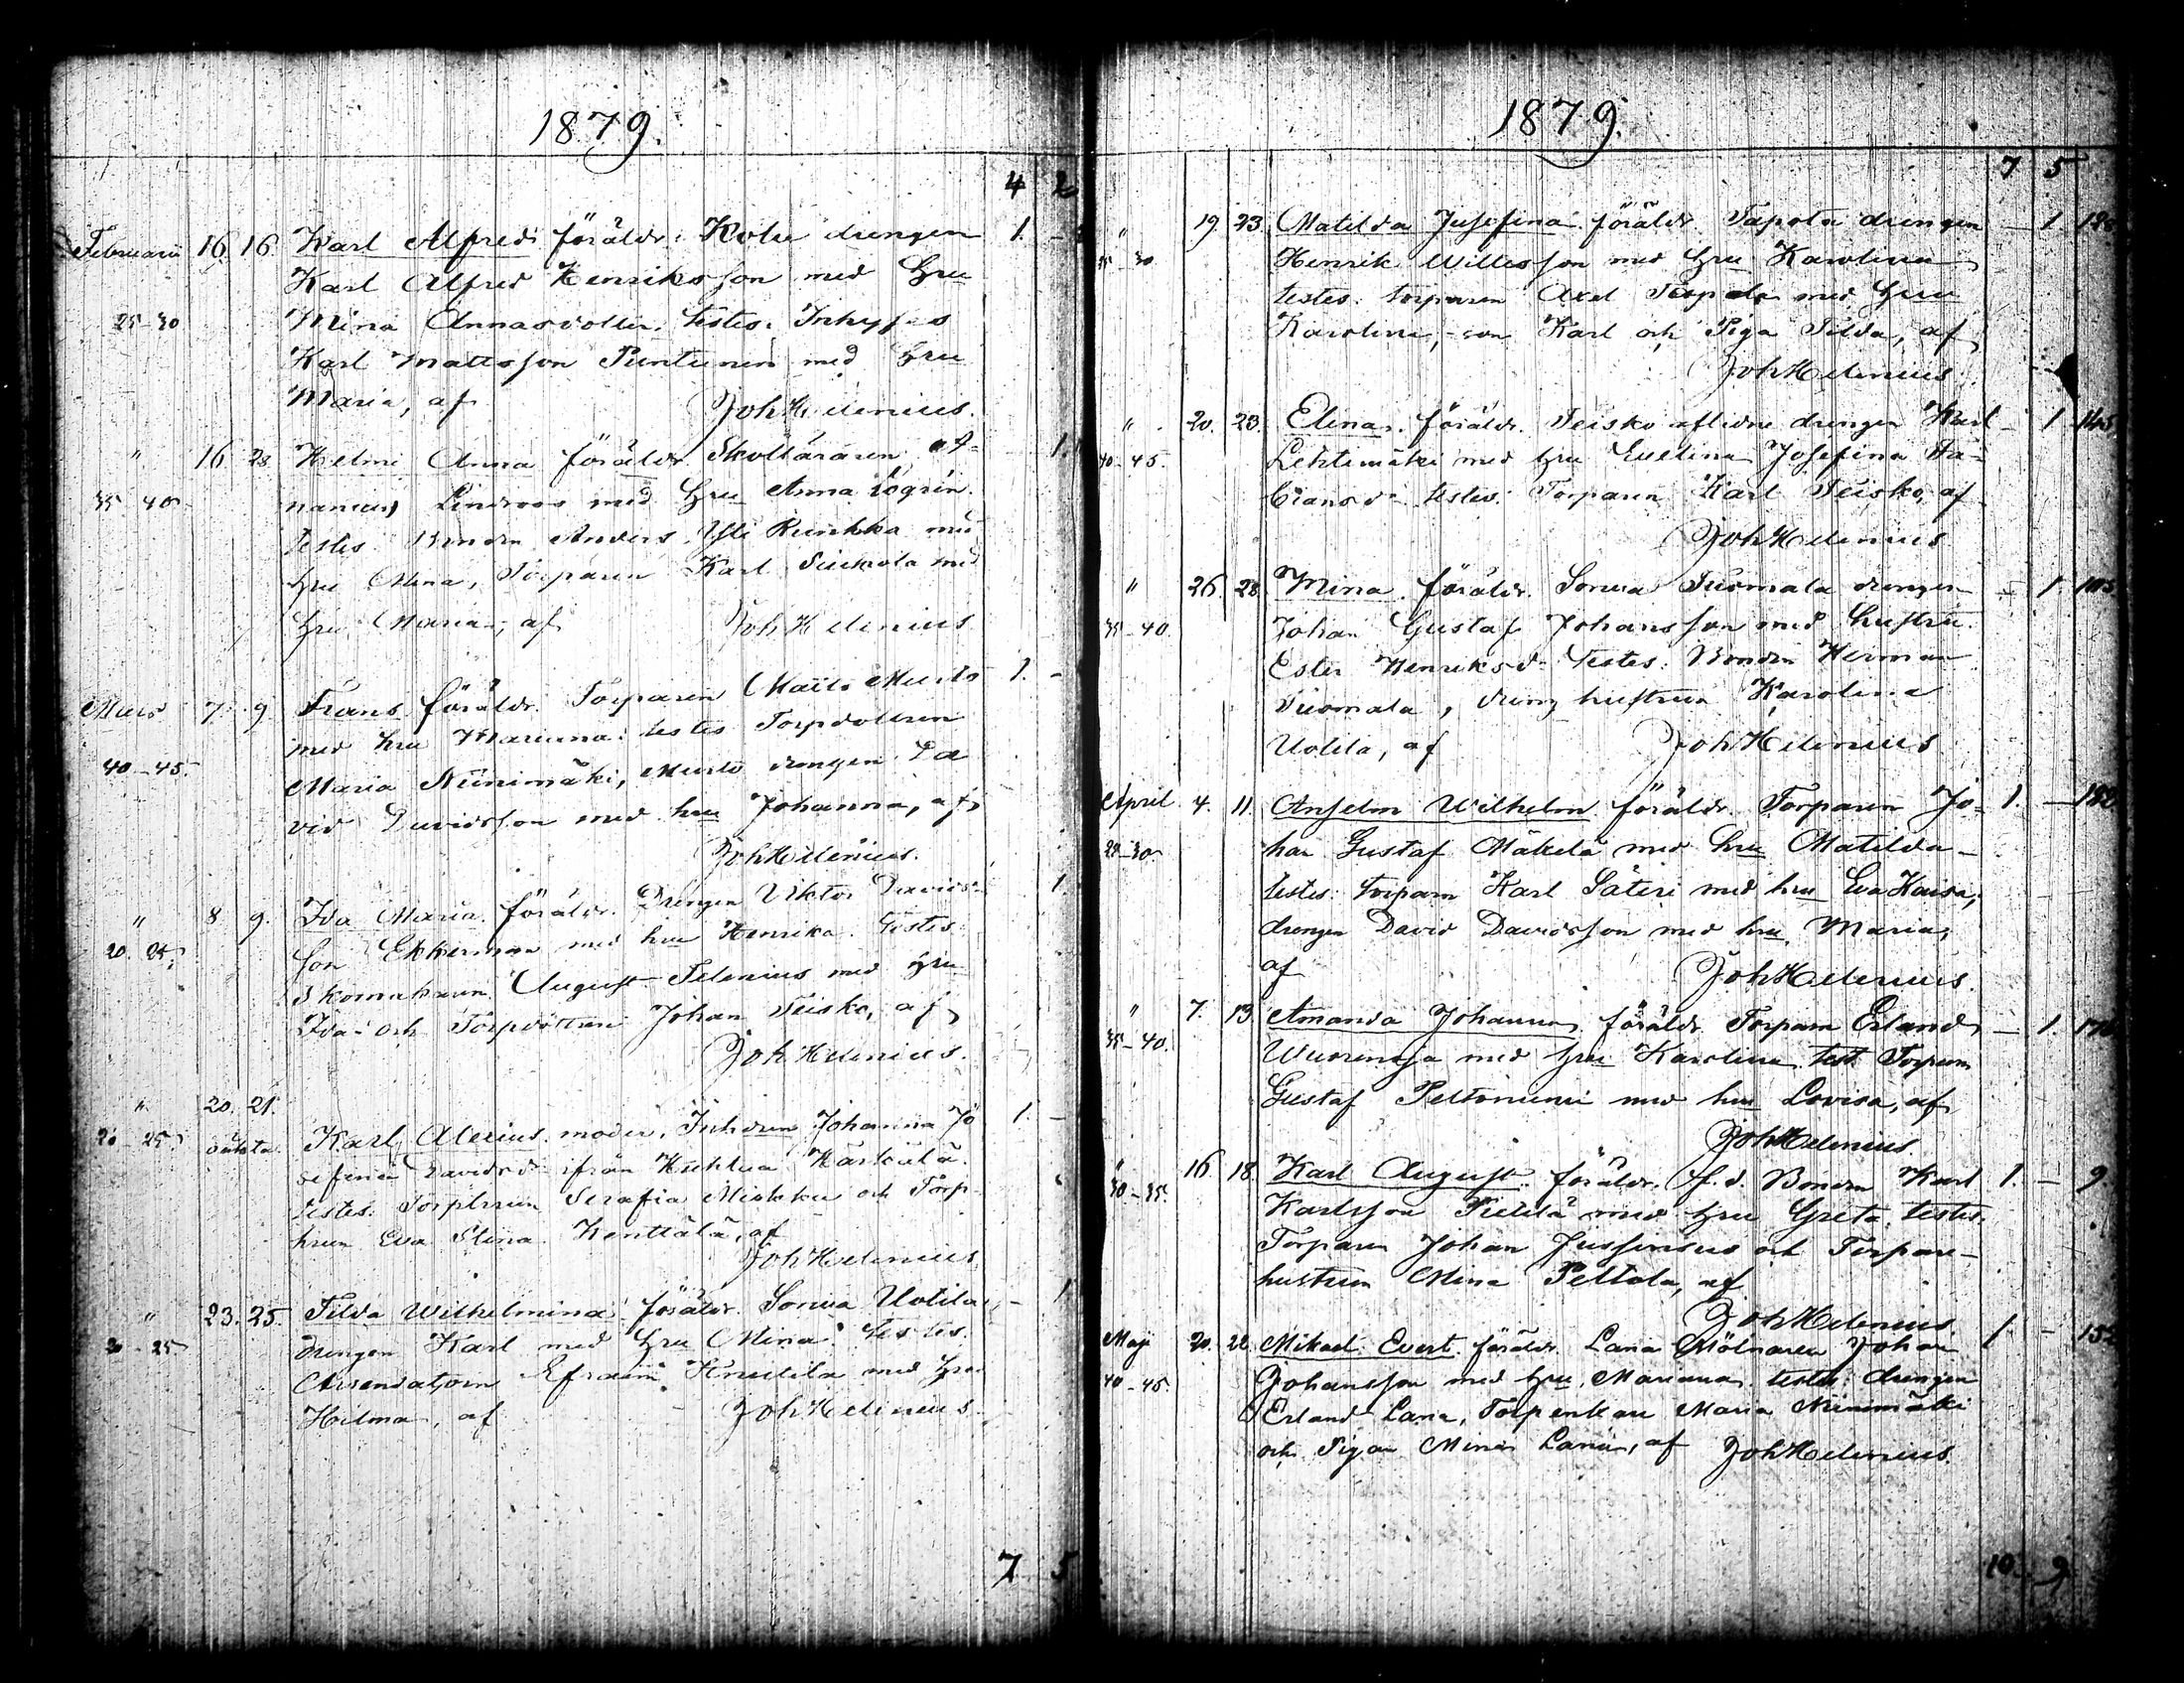 1879.
4 2
Februarii 16 16 Karl Alfred föräldr. drengen 1. -
Karl Alfred Henriksson med Hru
25-30 Mina Annasdotter. testes. Inhyses
Karl Mattsson Puntunen med Hru
Maria, af Joh Helenius.
" 16 28 Helmi Anna föräldr. Skolläraren 1.
35 40 Lindroos med Hru Anna
testes. Bonden Anders Yli Runkka med
Hru Mina, Torparen Karl med
Hru Maria, af Joh Helenius
Mars 7. 9 Frans föräldr. Torparen Matts Musto 1. -
med hru Marianna. testes Torpdottren
40-45. Maria Niinimäki, Musto drengen Da
vid Davidsson med hru Johanna, af
Joh Helenius.
" 8 9. Ida Maria. föräldr. Drengen Viktor Davids 1.
20. 25. son Ekkerman med hru Henrika. testes
Skomakaren August Selenius med hru
Ida och Johan Teisko, af
Joh Helenius.
" 20. 21. Karl Alexius. moder. Johanna Jo 1. -
20 25 oäkta sefina Davidsd. ifrån
testes. Serafia och Torp
hrun Eva Stina Kenttälä, af
Joh Helenius
" 23. 25. Tilda Wilhelmina föräldr. Sonnila Uotila - 1
20-25 drengen Karl med Hru Mina. testes.
Arrendatorn Efraim Knuutila med Hru
Hilma, af Joh Helenius
7 5
1879.
7 5
" 19. 23. Matilda Josefina föräldr. Tapola drengen - 1. 128
Henrik Willesson med Hru Karolina
testes. torparen Axel med Hru
Karolina, son Karl och Piga Tilda, af
Joh Helenius
" 20. 23. Elena. föräldr. Teisko aflidne drengen Karl - 1
40-45. Lehtimäki med Hru Evelina Josefina Fa-
biansd. testes: Torparen Karl Teisko, af
Joh Helenius
" 26. 28 Mina. föräldr. Tuomala drengen - 1.
35-40. Johan Gustaf Johansson med hustru.
Ester Henriksd. Testes: Bonden Herman
Tuomala, hustrun Karolina
Uotila, af Joh Helenius
April 4. 11. Anselm Wilhelm föräldr. Torparen Jo- 1. -
han Gustaf Mäkelä med hru Matilda
testes: torparn Karl Säteri med hru Eva Kaisa,
drengen David Davidsson med hru Maria,
af Joh Helenius.
" 7. 13 Amanda Johanna föräldr. Torparn Erland - 1.
35-40. Wuorenoja med hru Karolina. test. Torparn
Gustaf Peltoniemi med hru Lovisa, af
Joh Helenius.
" 16. 18 Karl August. föräldr. f.d. Bonden Karl 1. - 9
30-35. Karlsson Pietilä med Hru Greta. testes.
Torparen Johan och Torpare-
hustrun Mina Peltola, af
Joh Helenius
Maji 20. 22 Mikael Evert. föräldr. Lania Mölnaren Johan 1 -
40-45. Johansson med Hru Marianna. testes: drengen
Erland Lania, Maria Niinimäki
och Pigan Mina Lania, af Joh Helenius.
10. 9